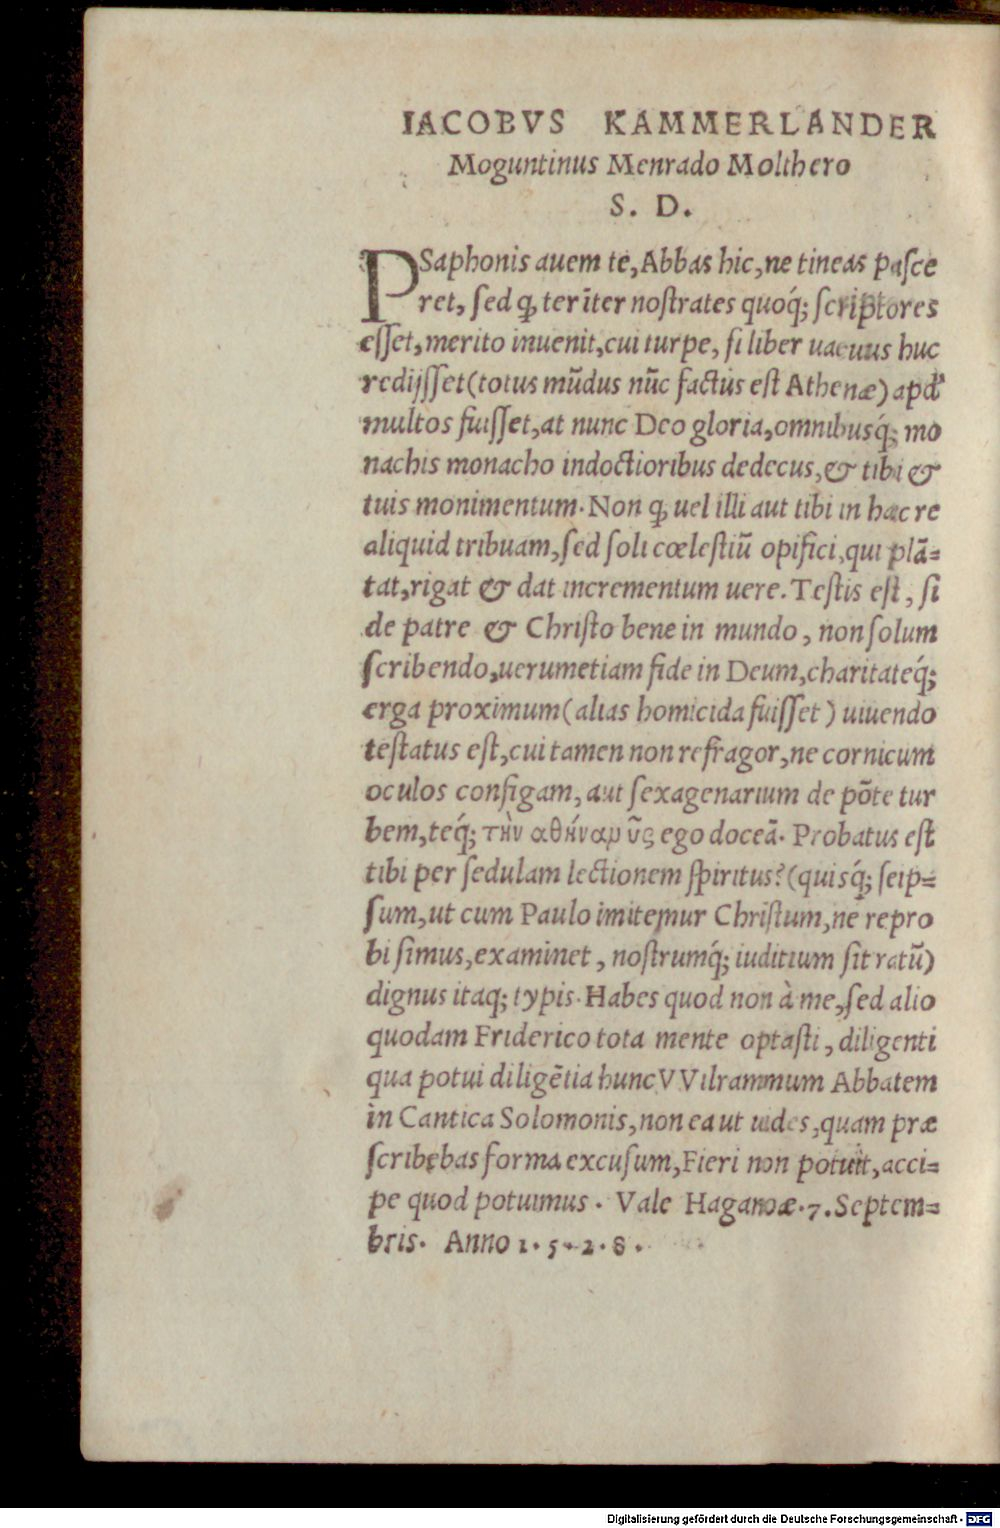 IACOBVS KAMMERLANDER
Moguntinus Menrado Molthero
S. D.
PSaphonis auem te, Abbas hic, ne tineas paſce
ret, ſed ꝙ ter īter noſtrates quoq́; ſcriptores
eſſet, merito inuenit, cui turpe, ſi liber uacuus huc
redijſſet (totus mūdus nūc factus eſt Athenæ) apđ
multos fuiſſet, at nunc Deo gloria, omnibusq́; mo
nachis monacho indoctioribus dedecus, & tibi &
tuis monimentum. Non ꝙ uel illi aut tibi in hac re
aliquid tribuam, ſed ſoli cœleſtiū opifici, qui plā=
tat, rigat & dat incrementum uere. Teſtis eſt, ſi
de patre & Chriſto bene in mundo, non ſolum
ſcribendo, uerumetiam fide in Deum, charitateq́;
erga proximum (alias homicida fuiſſet) uiuendo
teſtatus eſt, cui tamen non refragor, ne cornicum
oculos configam, aut ſexagenarium de pōte tur
bem, teq́; τὴν ἀθήναν ὗς ego doceā. Probatus eſt
tibi per ſedulam lectionem ſpiritus? (quisq́; ſeip=
ſum, ut cum Paulo imitemur Chriſtum, ne repro
bi ſimus, examinet, noſtrumq́; iuditium ſit ratū)
dignus itaq; typis. Habes quod non à me, ſed alio
quodam Friderico tota mente optaſti, diligenti
qua potui diligētia hunc VVilrammum Abbatem
in Cantica Solomonis, non ea ut uides, quam præ
ſcribebas forma excuſum, Fieri non potuit, acci=
pe quod potuimus. Vale Haganoæ. 7. Septem=
bris. Anno 1. 5. 2. 8.
Digitalisierung gefördert durch die Deutsche Forschungsgemeinschaft - DFG